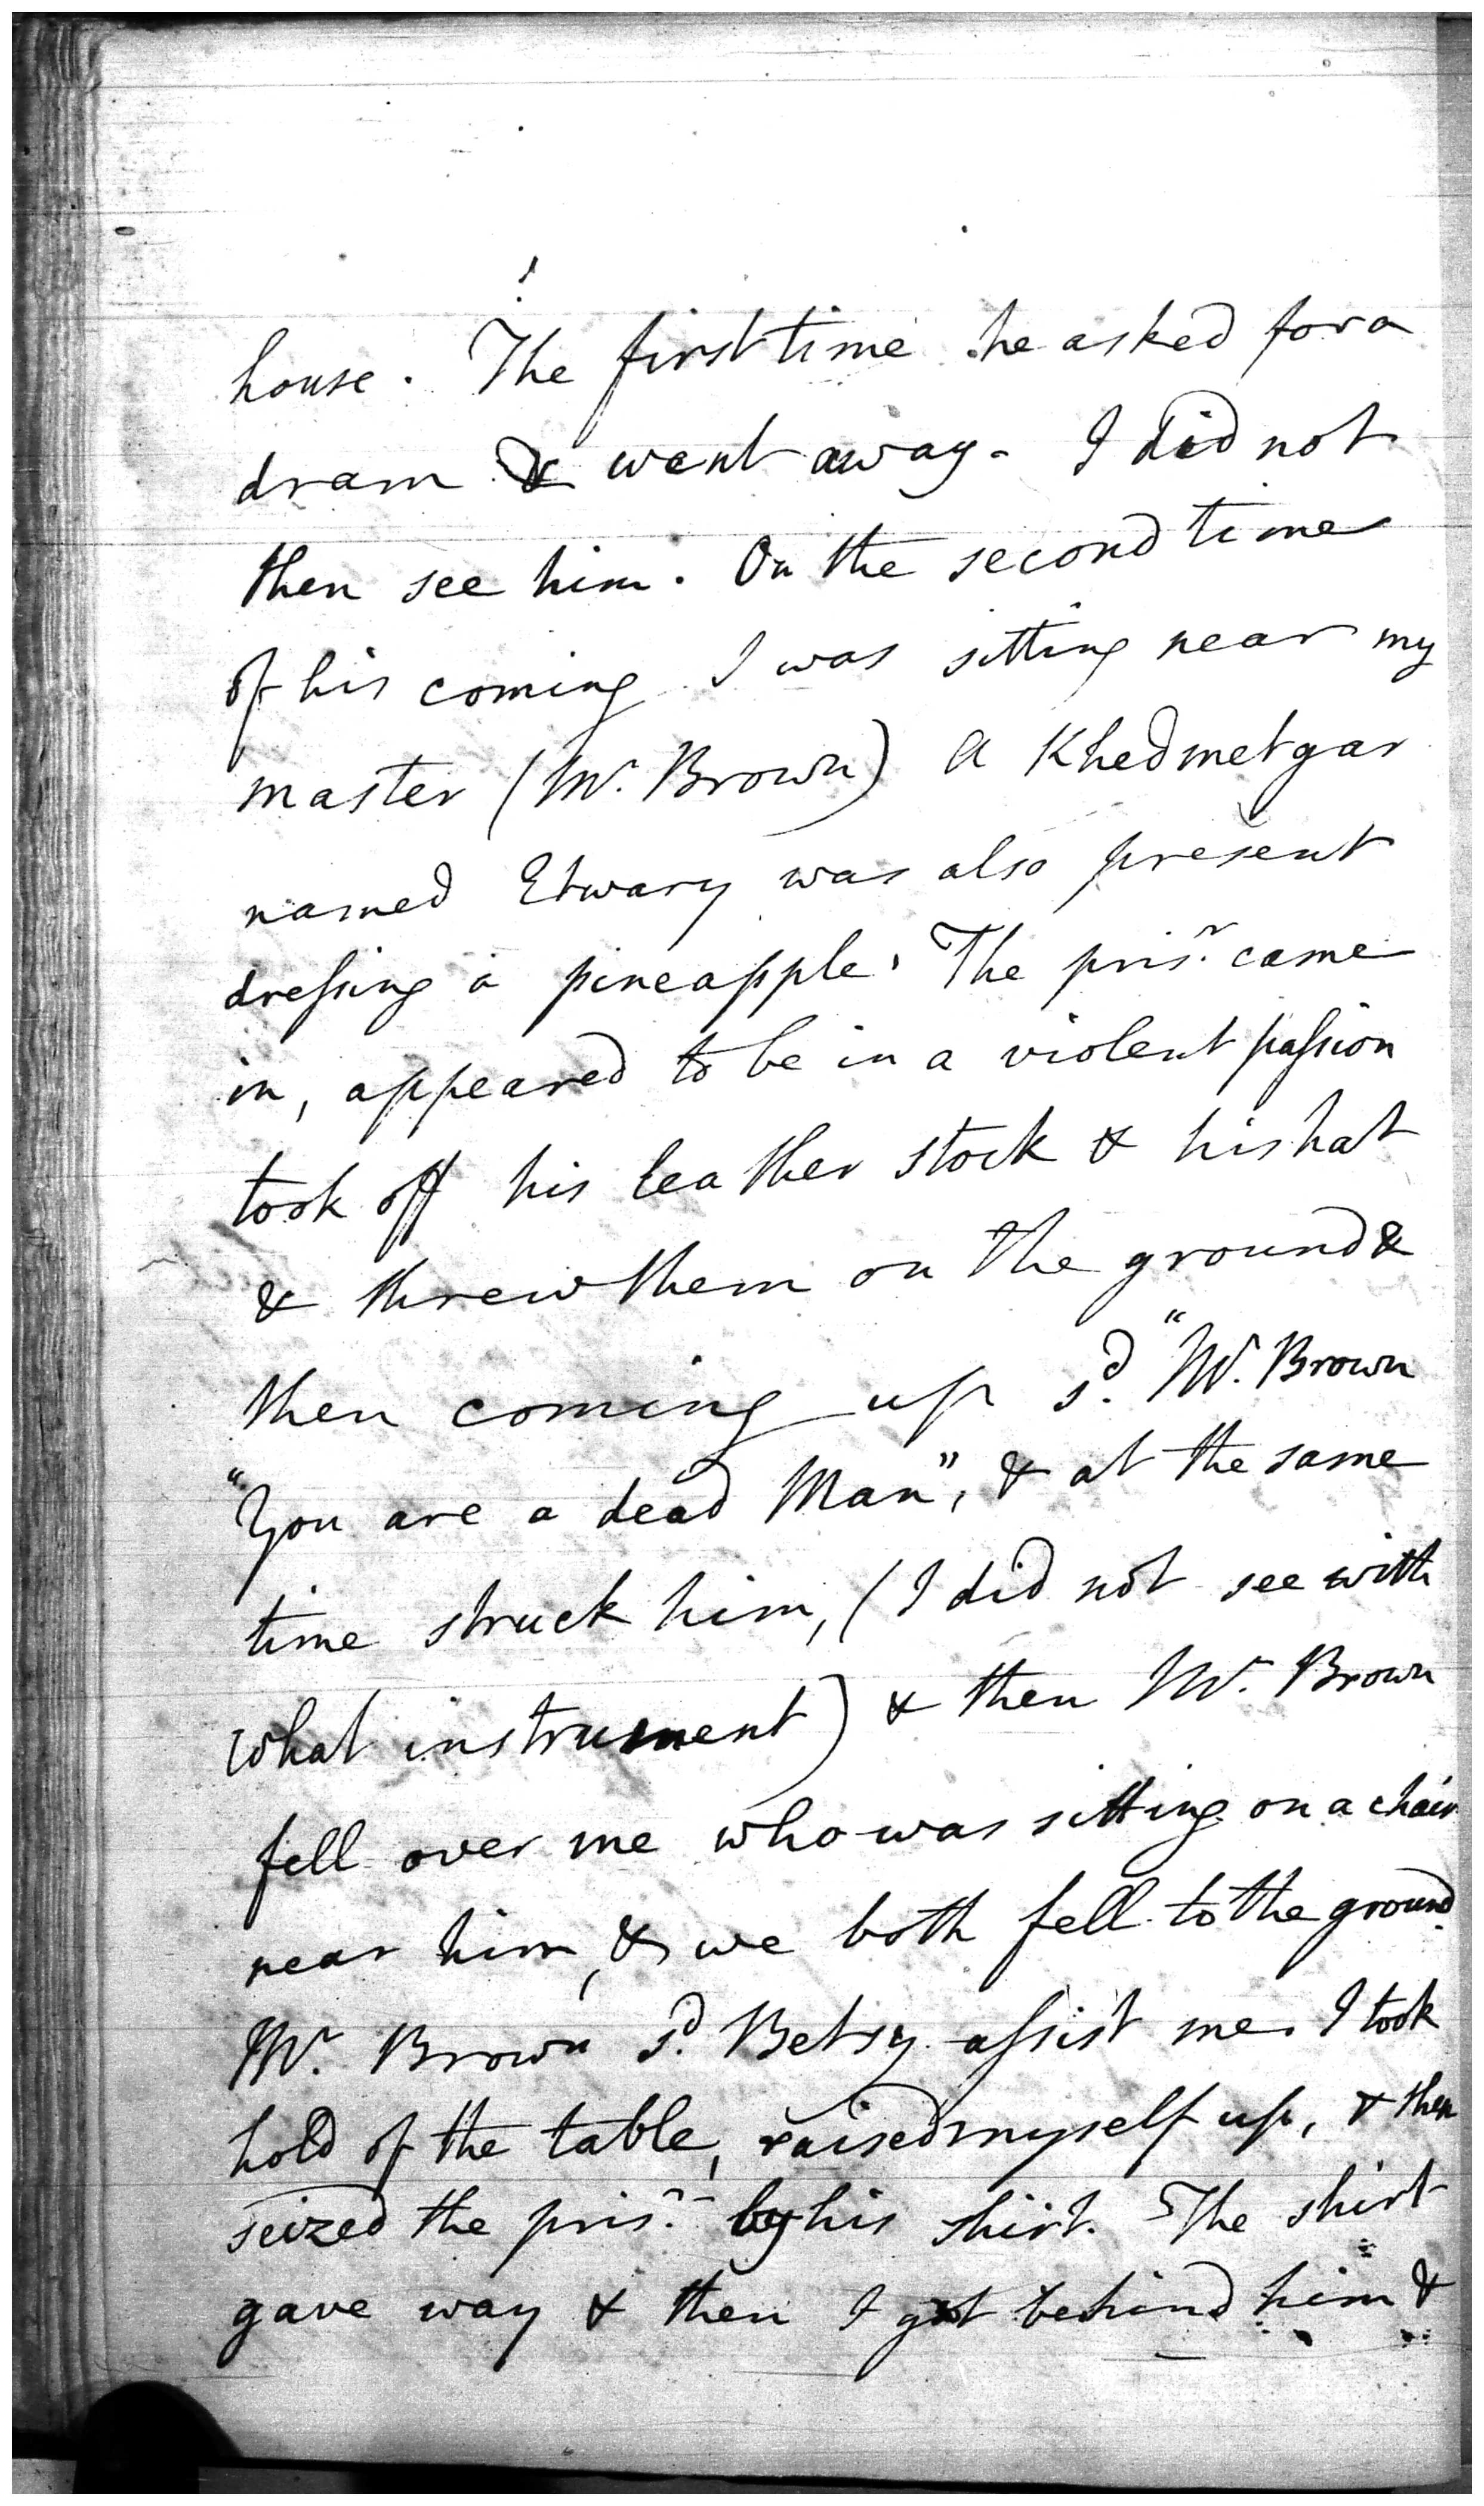 house. The first time he asked for a
dram & went away. I did not
then see him. On the second time
of his coming I was sitting near my
master (Mr. Brown) A Khedmetgar
named Etwary was also present
dreſsing a pineapple. The prisr. came
in, appeared to be in a violent paſsion
took off his leather stock & his hat
& threw them on the ground &
then coming up sd. "Mr. Brown
"You are a dead Man", & at the same
time struck him, (I did not see with
what instrument) & then Mr. Brown
fell over me who was sitting on a chair
near him, & we both fell to the ground
Mr. Brown sd. Betsy aſsist me. I took
hold of the table, raised myself up, & then
seized the prisr. by his shirt. The shirt
gave way & then I got behind him &